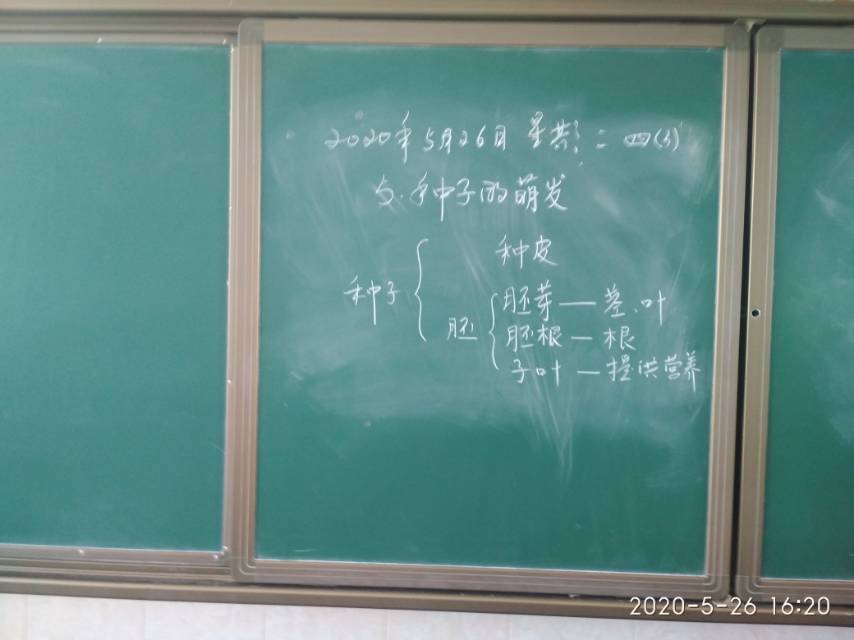 2020年5月26日 星期二 四(3)
5.种子的萌发
种皮
种子
胚芽—茎.叶
胚
胚根—根
子叶—提供营养
2020-5-26 16:20